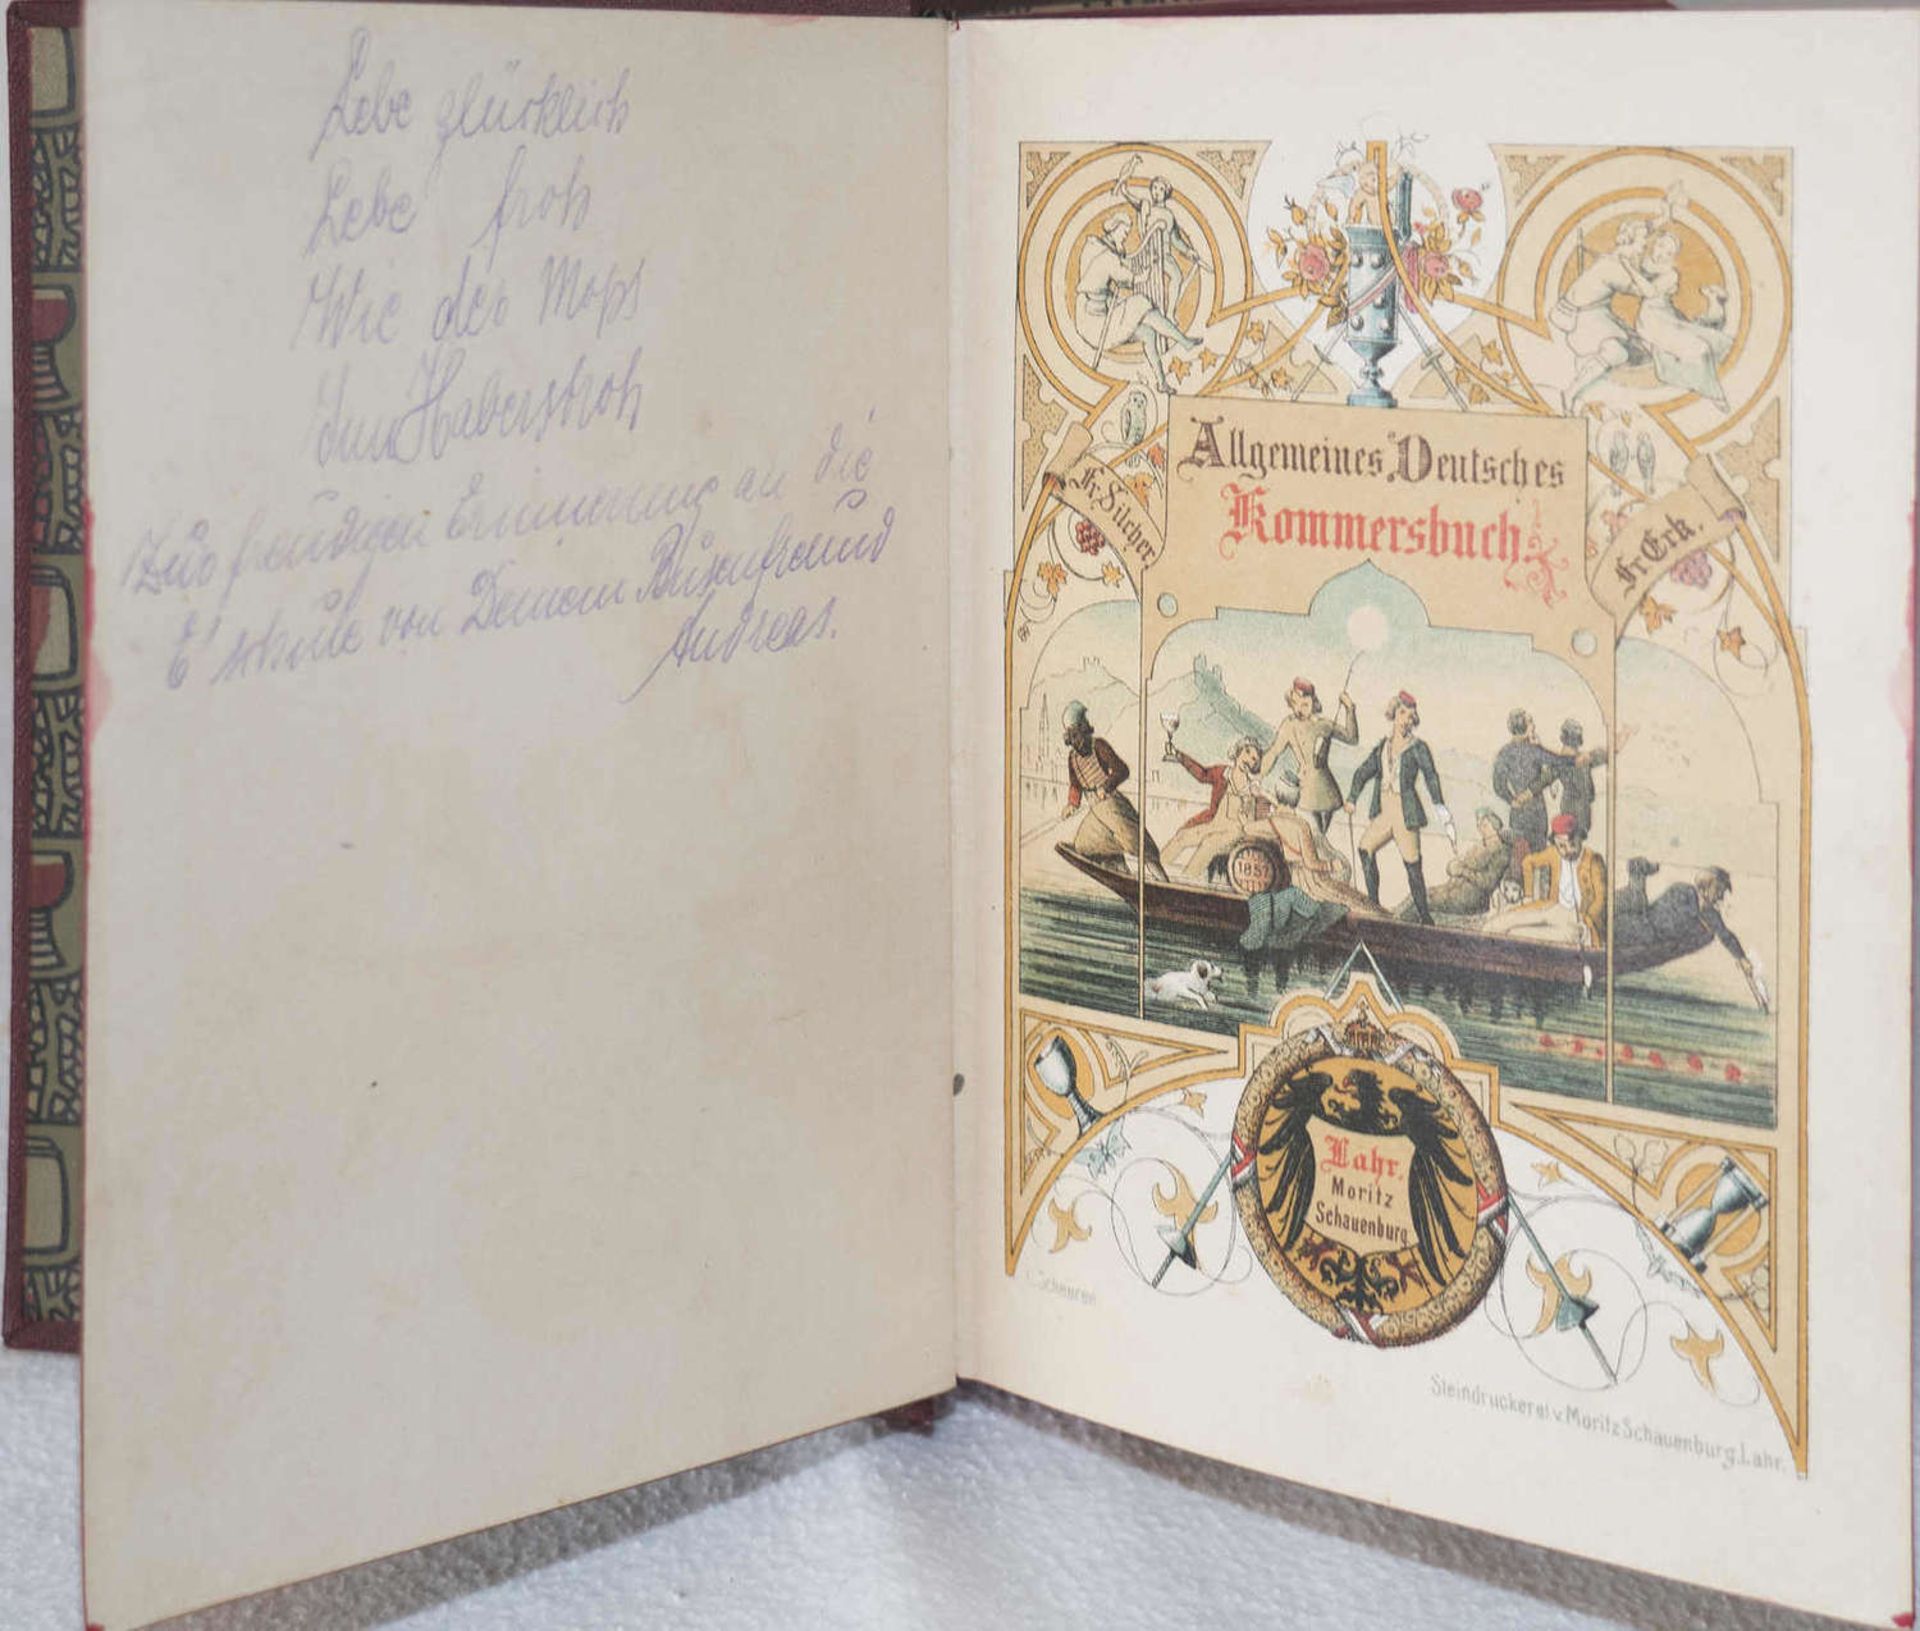 Lebe glücklich
Lebe froh
Wie der Mops
im Haberstroh
Zur freudigen Erinnerung an die
schule von Deinem Busenfreund
Andreas.
Allgemeines Deutsches
Kommersbuch
Fr. Silcher.
Fr Erk.
1857
Lahr,
Moritz
Schauenburg
C. Scheuren
Steindruckerei v. Moritz Schauenburg, Lahr.